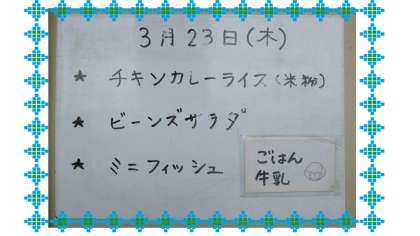 3月23日(木)
★ チキンカレーライス(米粉)
★ ビーンズサラダ
★ ミニフィッシュ
ごはん
牛乳